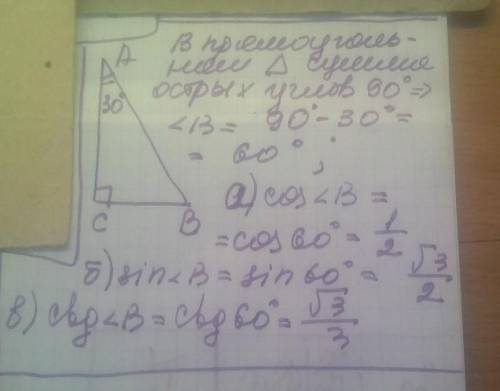 A
30°
C
B
В прямоуголь-
ном Δ сумма
острых углов 90° ⇒
∠B = 90° - 30° =
= 60°;
а) cos∠B =
= cos 60° = 1/2
б) sin∠B = sin 60° = √3/2
в) ctg∠B = ctg 60° = √3/3